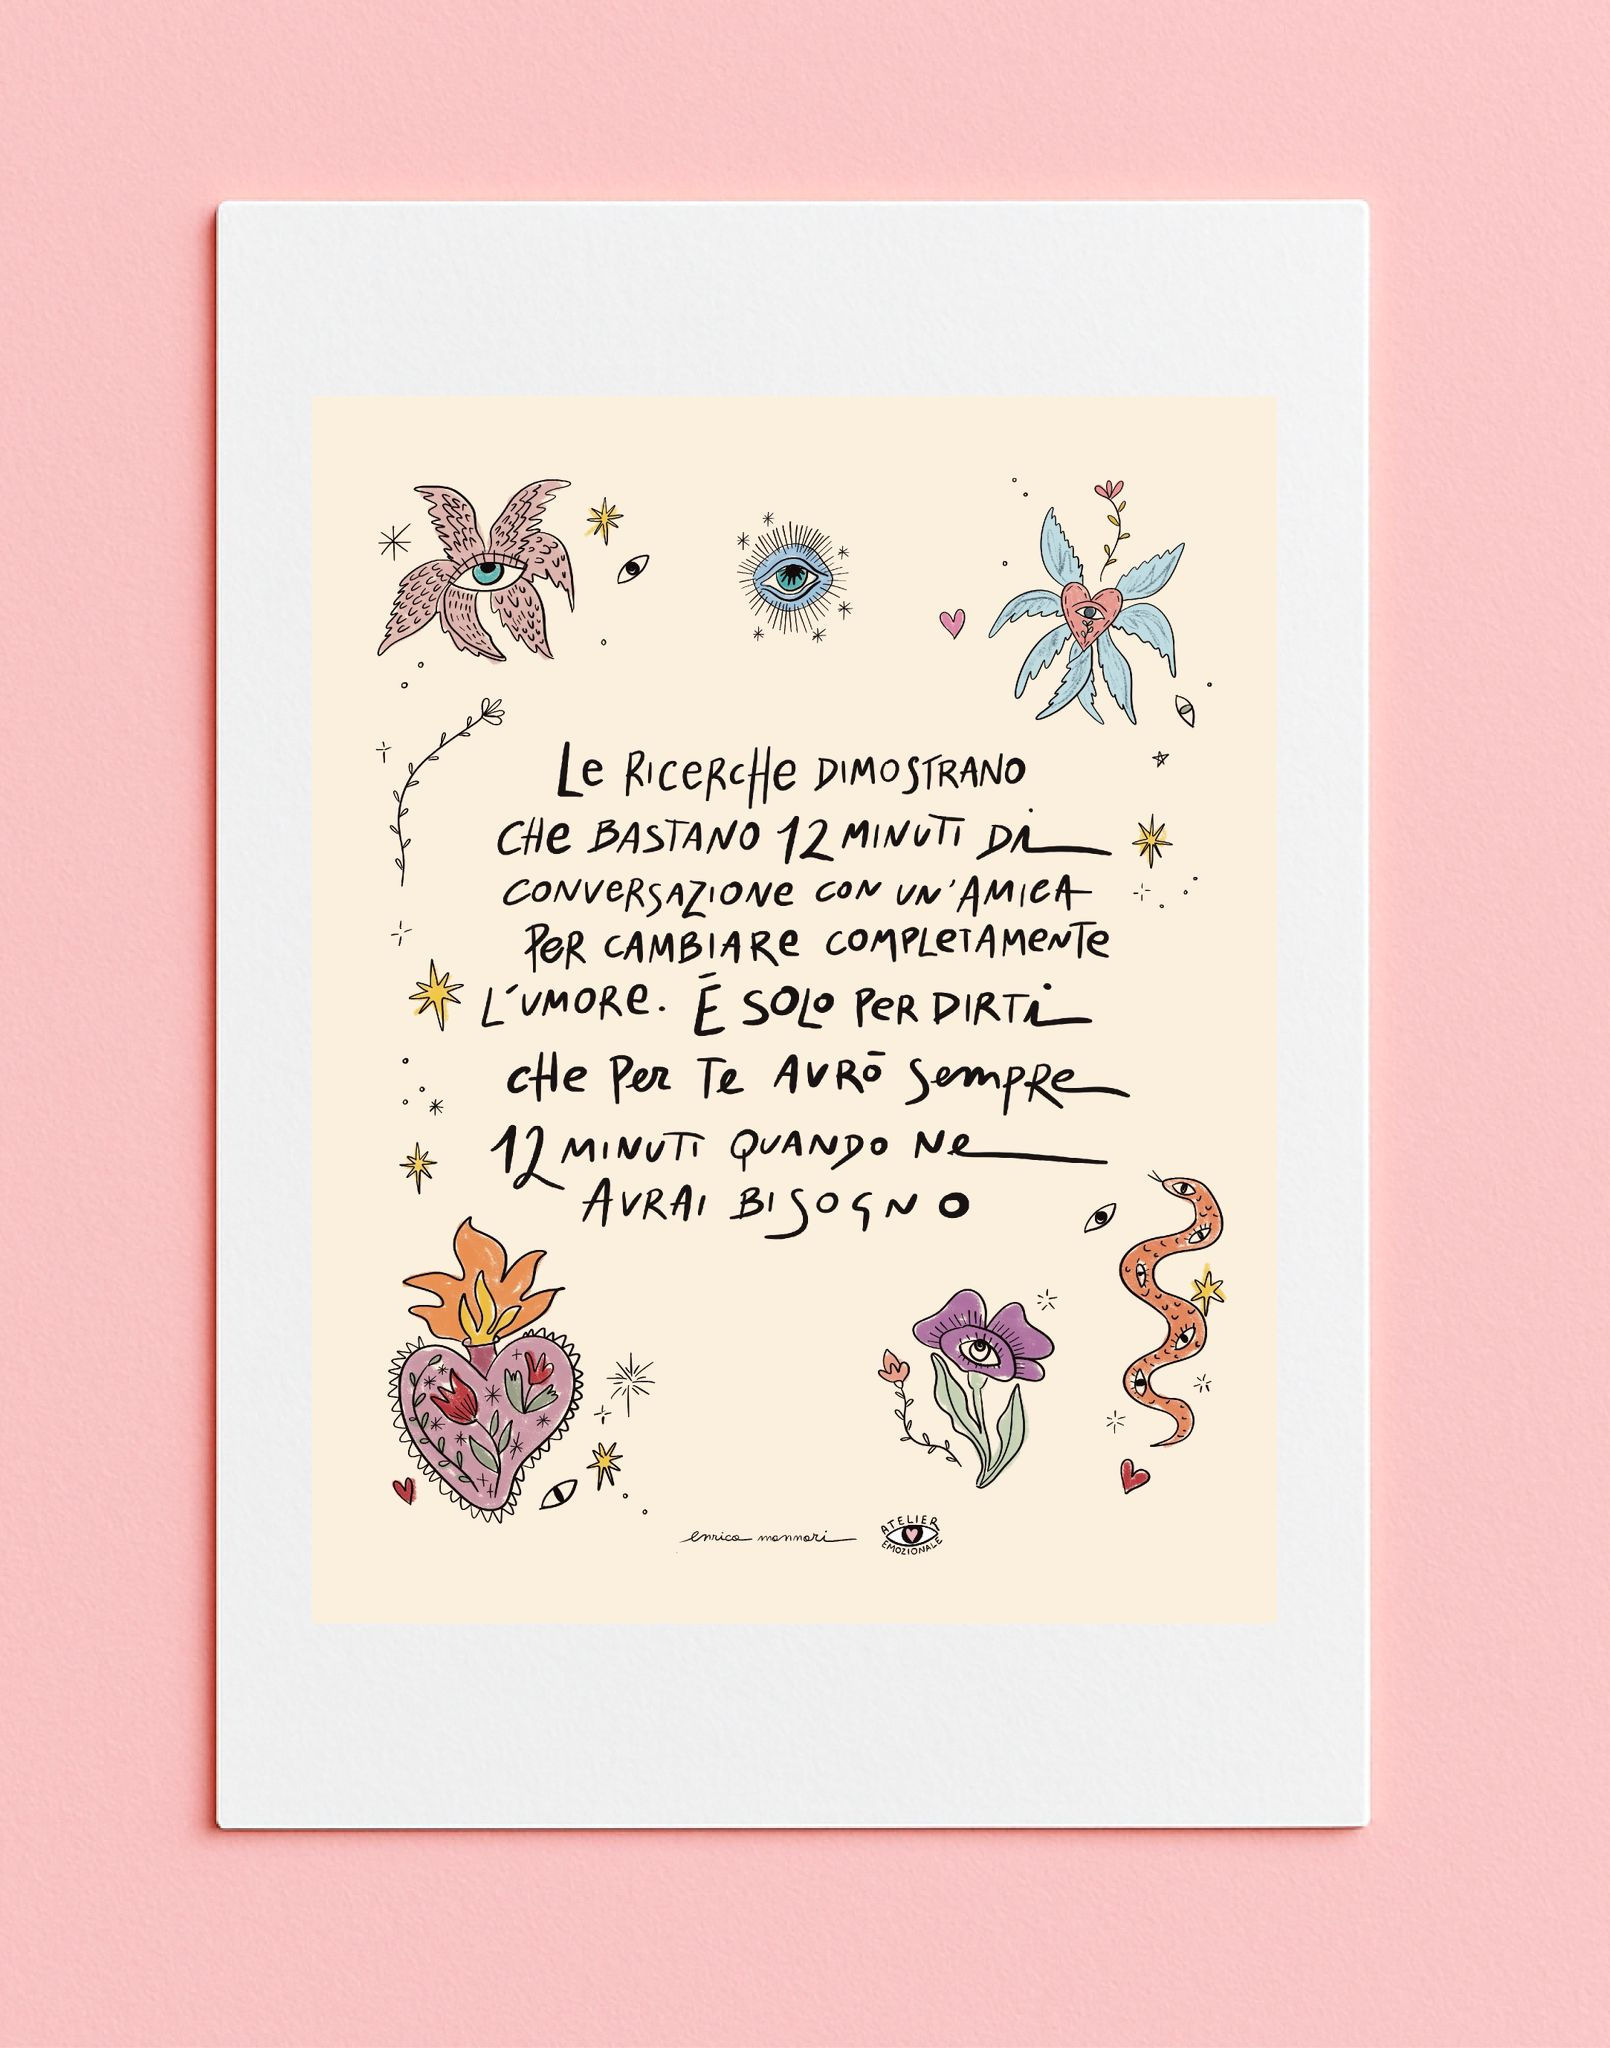 Le RICERCHE DIMOSTRANO
CHe BASTANO 12 MINUTI Di
CONVERSAZIONE CON UN'AMICA
PER CAMBIARE COMPLETAMENTE
L'UMORE. È SOLO PER DIRTi
CHE PER TE AVRÒ SEMPRE
12 MINUTI QUANDO NE
AVRAI BISOGNO
enrica mannari
ATELIER
EMOZIONALE